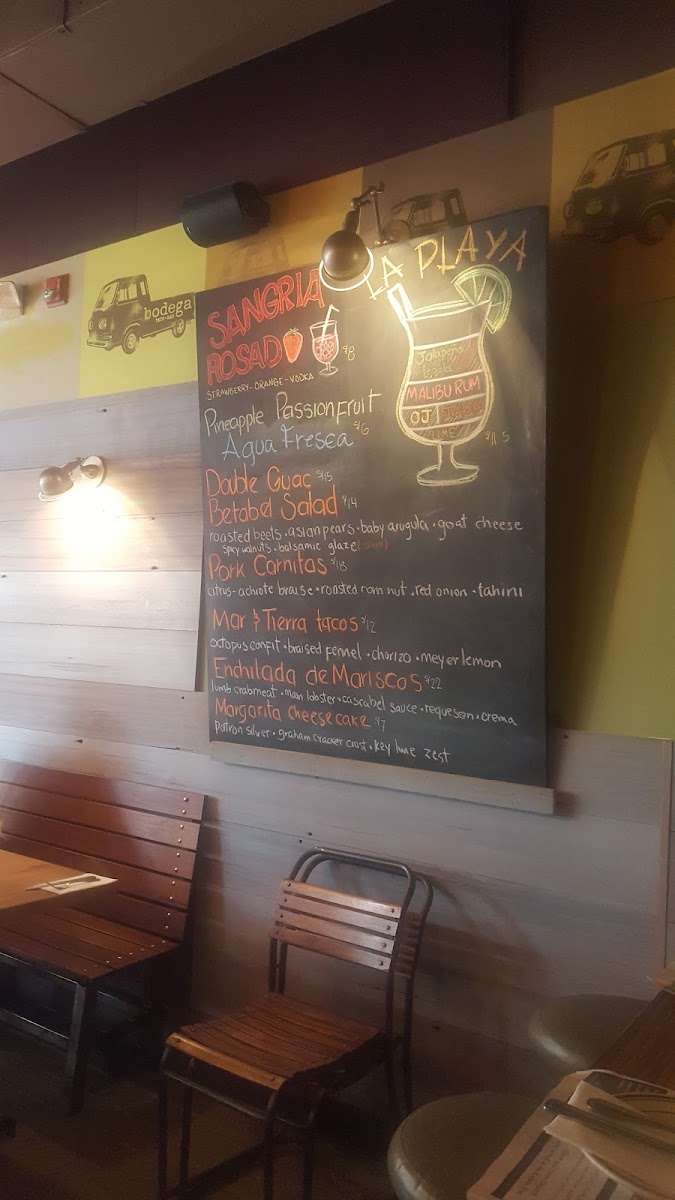 bodega
TACO BAR
SANGRIA
ROSADO
$8
STRAWBERRY - ORANGE - VODKA
Pineapple Passion Fruit
Agua Fresca $6
LA PLAYA
Jalapeño
Tequila
MALIBU RUM
OJ
LIME
$11.5
Double Guac $15
Betabel Salad $14
roasted beets • asian pears • baby arugula • goat cheese
spicy walnuts • balsamic glaze
Pork Carnitas $18
citrus-achiote braise • roasted nut • red onion • tahini
Mar & Tierra tacos $12
octopus confit • braised fennel • chorizo • meyer lemon
Enchilada de Mariscos $22
lumb crabmeat • main lobster • cascabel sauce • requeson • crema
Margarita cheesecake $7
Patron silver • graham cracker crust • key lime zest